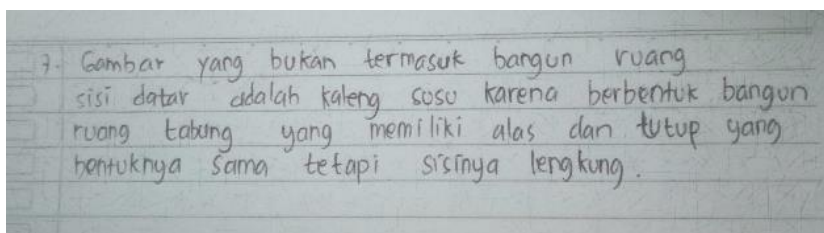 7. Gambar yang bukan termasuk bangun ruang
sisi datar adalah kaleng susu karena berbentuk bangun
ruang tabung yang memiliki alas dan tutup yang
bentuknya sama tetapi sisinya lengkung.